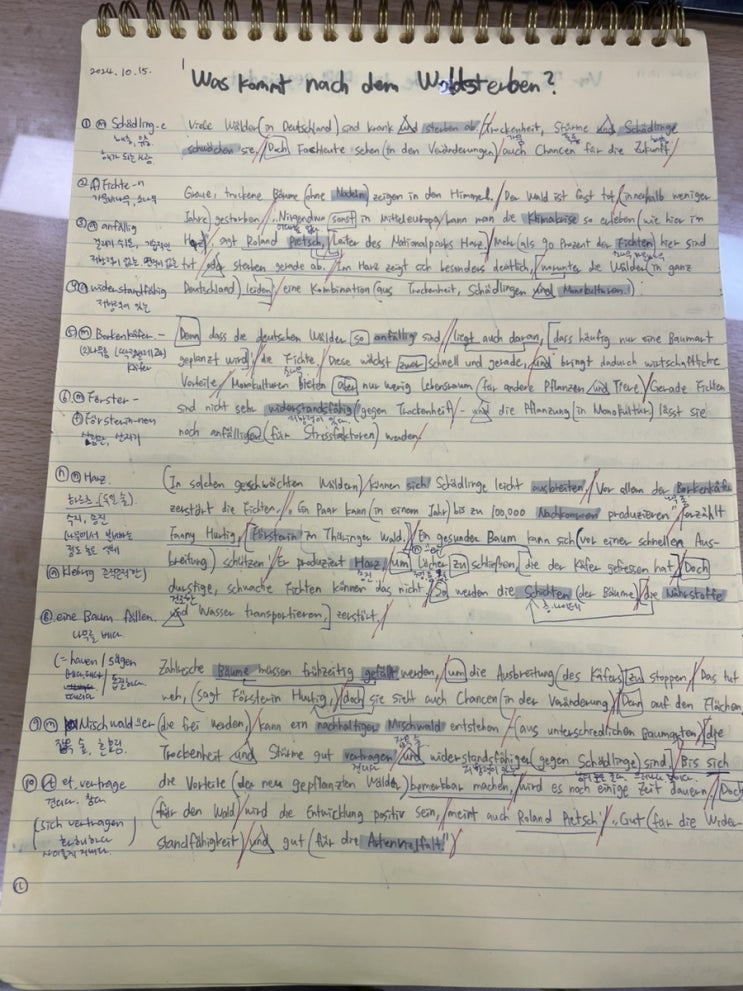 2024.10.15.
Was kommt nach dem Waldsterben?
① ⓜ Schädling-e
해충, 유해
해가 되는 사람
Viele Wälder (in Deutschland) sind krank und sterben ab. Trockenheit, Stürme und Schädlinge
schwächen sie. Doch Fachleute sehen (in den Veränderungen) auch Chancen für die Zukunft.
② ⓕ Fichte-n
가문비나무, 소나무
Graue, trockene Bäume (ohne Nadeln) zeigen in den Himmel. Der Wald ist fast tot (innerhalb weniger
Jahre) gestorben. „Nirgendwo sonst in Mitteleuropa kann man die Klimakrise so erleben (wie hier im
③ anfällig
Harz)", sagt Roland Pietsch, Leiter des Nationalparks Harz. Mehr (als 90 Prozent der Fichten) hier sind
저항력이 없는 면역이 없는
tot oder sterben gerade ab. Im Harz zeigt sich besonders deutlich, worunter die Wälder (in ganz
④ widerstandsfähig
저항력이 있는
Deutschland) leiden: eine Kombination (aus Trockenheit, Schädlingen und Monokulturen.)
⑤ ⓜ Borkenkäfer-
나무좀 (딱정벌레과)
Denn dass die deutschen Wälder so anfällig sind, liegt auch daran, dass häufig nur eine Baumart
geplanzt wird: die Fichte. Diese wächst zwar schnell und gerade, und bringt dadurch wirtschaftliche
Vorteile. Monokulturen bieten aber nur wenig Lebensraum (für andere Pflanzen und Tiere). Gerade Fichten
⑥ ⓜ Förster-
ⓕ Försterin-nen
sind nicht sehr widerstandsfähig (gegen Trockenheit) - und die Pflanzung (in Monokultur) lässt sie
저항력이 있는
noch anfälliger (für Stressfaktoren) werden.
ⓜ Harz.
하르츠 (독일 숲)
수지, 송진
(In solchen geschwächten Wäldern) können sich Schädlinge leicht ausbreiten. Vor allem der Borkenkäfer
zerstört die Fichten. „Ein Paar kann (in einem Jahr) bis zu 100,000 Nachkommen produzieren", erzählt
Fanny Hurtig, Försterin im Thüringer Wald. Ein gesunder Baum kann sich (vor einer schnellen Aus-
breitung) schützen: Er produziert Harz, um Löcher zu schließen, die der Käfer gefressen hat. Doch
klebrig 끈적끈적한
durstige, schwache Fichten können das nicht. So werden die Schichten (der Bäume), die Nährstoffe
⑧ eine Baum fällen.
나무를 베다
und Wasser transportieren, zerstört.
(= hauen / sägen
톱질하다
Zahlreiche Bäume müssen frühzeitig gefällt werden, um die Ausbreitung (des Käfers) zu stoppen. Das tut
weh, (sagt Försterin Hurtig,) doch sie sieht auch Chancen (in der Veränderung). Denn auf den Flächen,
⑨ ⓜ Mischwald-"er
잡목 숲, 혼합림
(die frei werden,) kann ein nachhaltiger Mischwald entstehen (aus unterschiedlichen Baumarten), die
잡목 숲
Trockenheit und Stürme gut vertragen und widerstandsfähiger (gegen Schädlinge) sind. Bis sich
견디다
⑩ et. vertrage
견디다. 참다
die Vorteile (der neu gepflanzten Wälder) bemerkbar machen, wird es noch einige Zeit dauern. Doch
(sich vertragen
화해하다
사이좋게 지내다.
(für den Wald) wird die Entwicklung positiv sein, meint auch Roland Pietsch. „Gut (für die Wider-
standfähigkeit) und gut (für die Artenvielfalt.)"